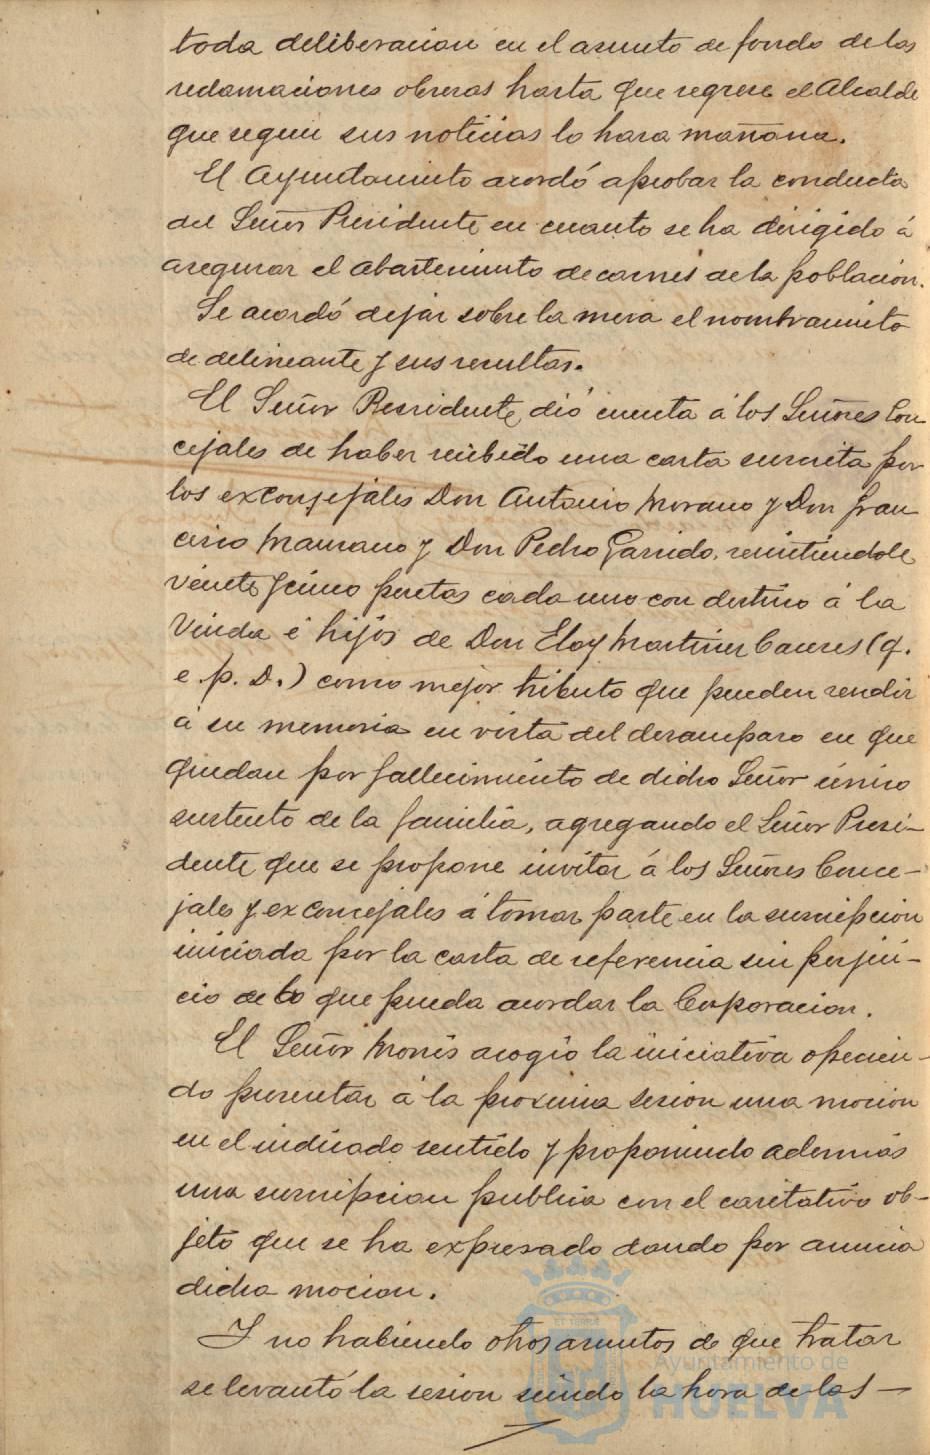 toda deliberacion en el asunto de fondo de las
reclamaciones obreras hasta que regrese el Alcalde
que segun sus noticias lo hara mañana.
El Ayuntamiento acordó aprobar la conducta
del Señor Presidente en cuanto se ha dirigido á
asegurar el abastecimiento de carnes de la poblacion.
Se acordó dejar sobre la mesa el nombramiento
de delineante y sus resultas.
El Señor Presidente dió cuenta á los Señores Con
cejales de haber recibido una carta suscrita por
los exconcejales Don Antonio Morano y Don Fran
cisco Manzano y Don Pedro Garrido, remitiendole
veinte y cinco pesetas cada uno con destino á la
Viuda é hijos de Don Eloy Martinez Caceres (q.
e. p. D.) como mejor tributo que pueden rendir
á su memoria en vista del desamparo en que
quedan por fallecimiento de dicho Señor único
sustento de la familia, agregando el Señor Presi-
dente que se propone invitar á los Señores Conce-
jales y exconcejales á tomar parte en la suscripcion
iniciada por la carta de referencia sin perjui-
cio de lo que pueda acordar la Corporacion.
El Señor Monis acogió la iniciativa ofrecien-
do presentar á la proxima sesion una mocion
en el indicado sentido y proponiendo además
una suscripcion publica con el caritativo ob-
jeto que se ha expresado dando por anuncia
dicha mocion.
Y no habiendo otros asuntos de que tratar
se levantó la sesion siendo la hora de las —
Ayuntamiento de
HUELVA